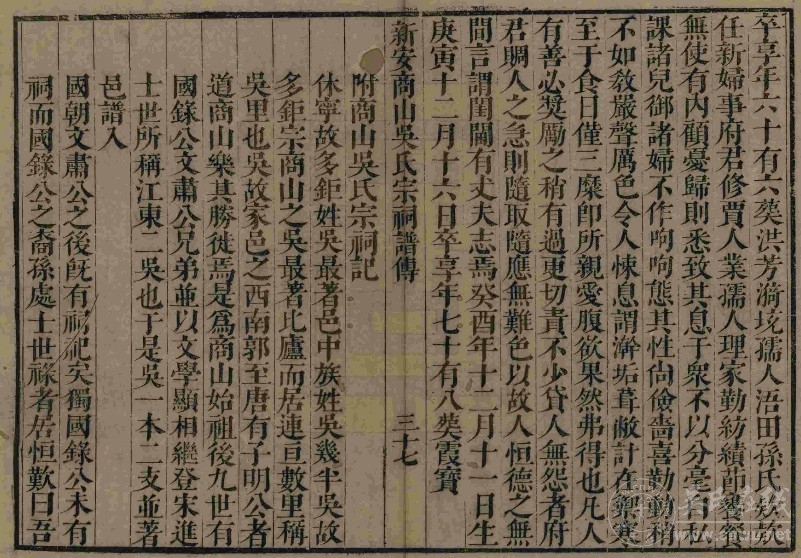 卒享年六十有六葬洪芳漪坑孺人浯田孫氏
任新婦事府君修賈人業孺人理家勤紡績節饔餐
無使有內顧憂歸則悉致其息于衆不以分毫有私
課諸兒御諸婦不作呴呴態其性尙儉嗇喜勤動稍
不如敎嚴聲厲色令人悚息謂澣垢葺敝計在禦寒
至于食日僅三糜卽所親愛腹欲果然弗得也凡人
有善必奬勵之稍有過更切責不少貸人無怨者府
君賙人之急則隨取隨應無難色以故人恒德之無
間言謂閨閫有丈夫志焉癸酉年十二月十一日生
庚寅十二月十六日卒享年七十有八葬霞寶
新安商山吳氏宗祠譜傳 三十七
附商山吳氏宗祠記
休寧故多鉅姓吳最著邑中族姓吳幾半吳故
多鉅宗商山之吳最著比廬而居連亘數里稱
吳里也吳故家邑之西南郭至唐有子明公者
道商山樂其勝徙焉是爲商山始祖後九世有
國錄公文肅公兄弟並以文學顯相繼登宋進
士世所稱江東二吳也于是吳一本二支並著
邑譜入
國朝文肅公之後旣有祠祀矣獨國錄公未有
祠而國錄公之裔孫處士世祿者居恒歎曰吾